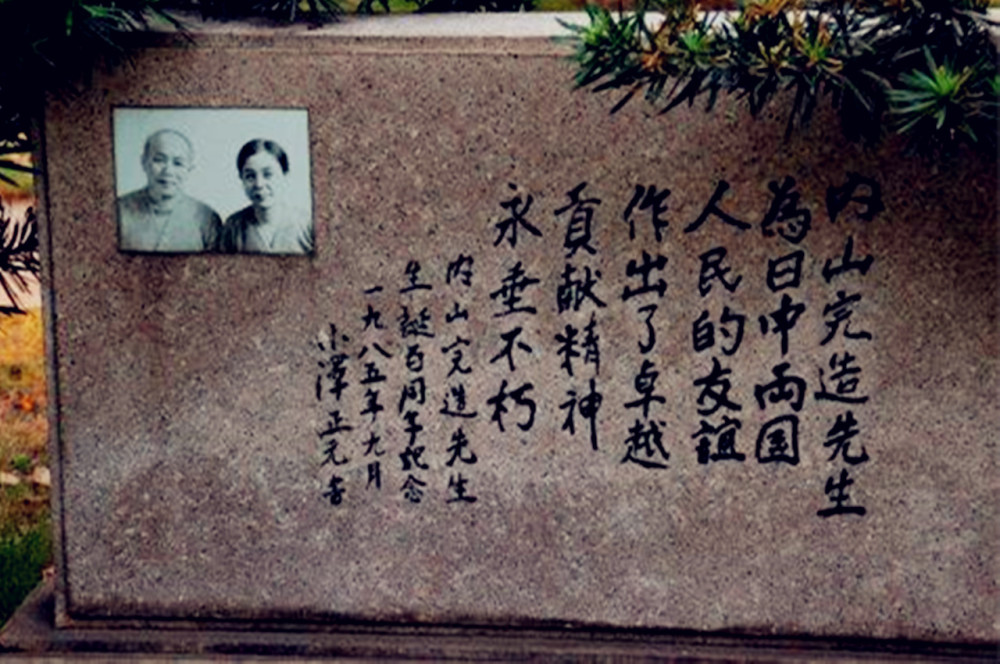 内山完造先生
為日中両国
人民的友誼
作出了卓越
貢献精神
永垂不朽
内山完造先生
生誕百周年紀念
一九八五年九月
小澤正元書